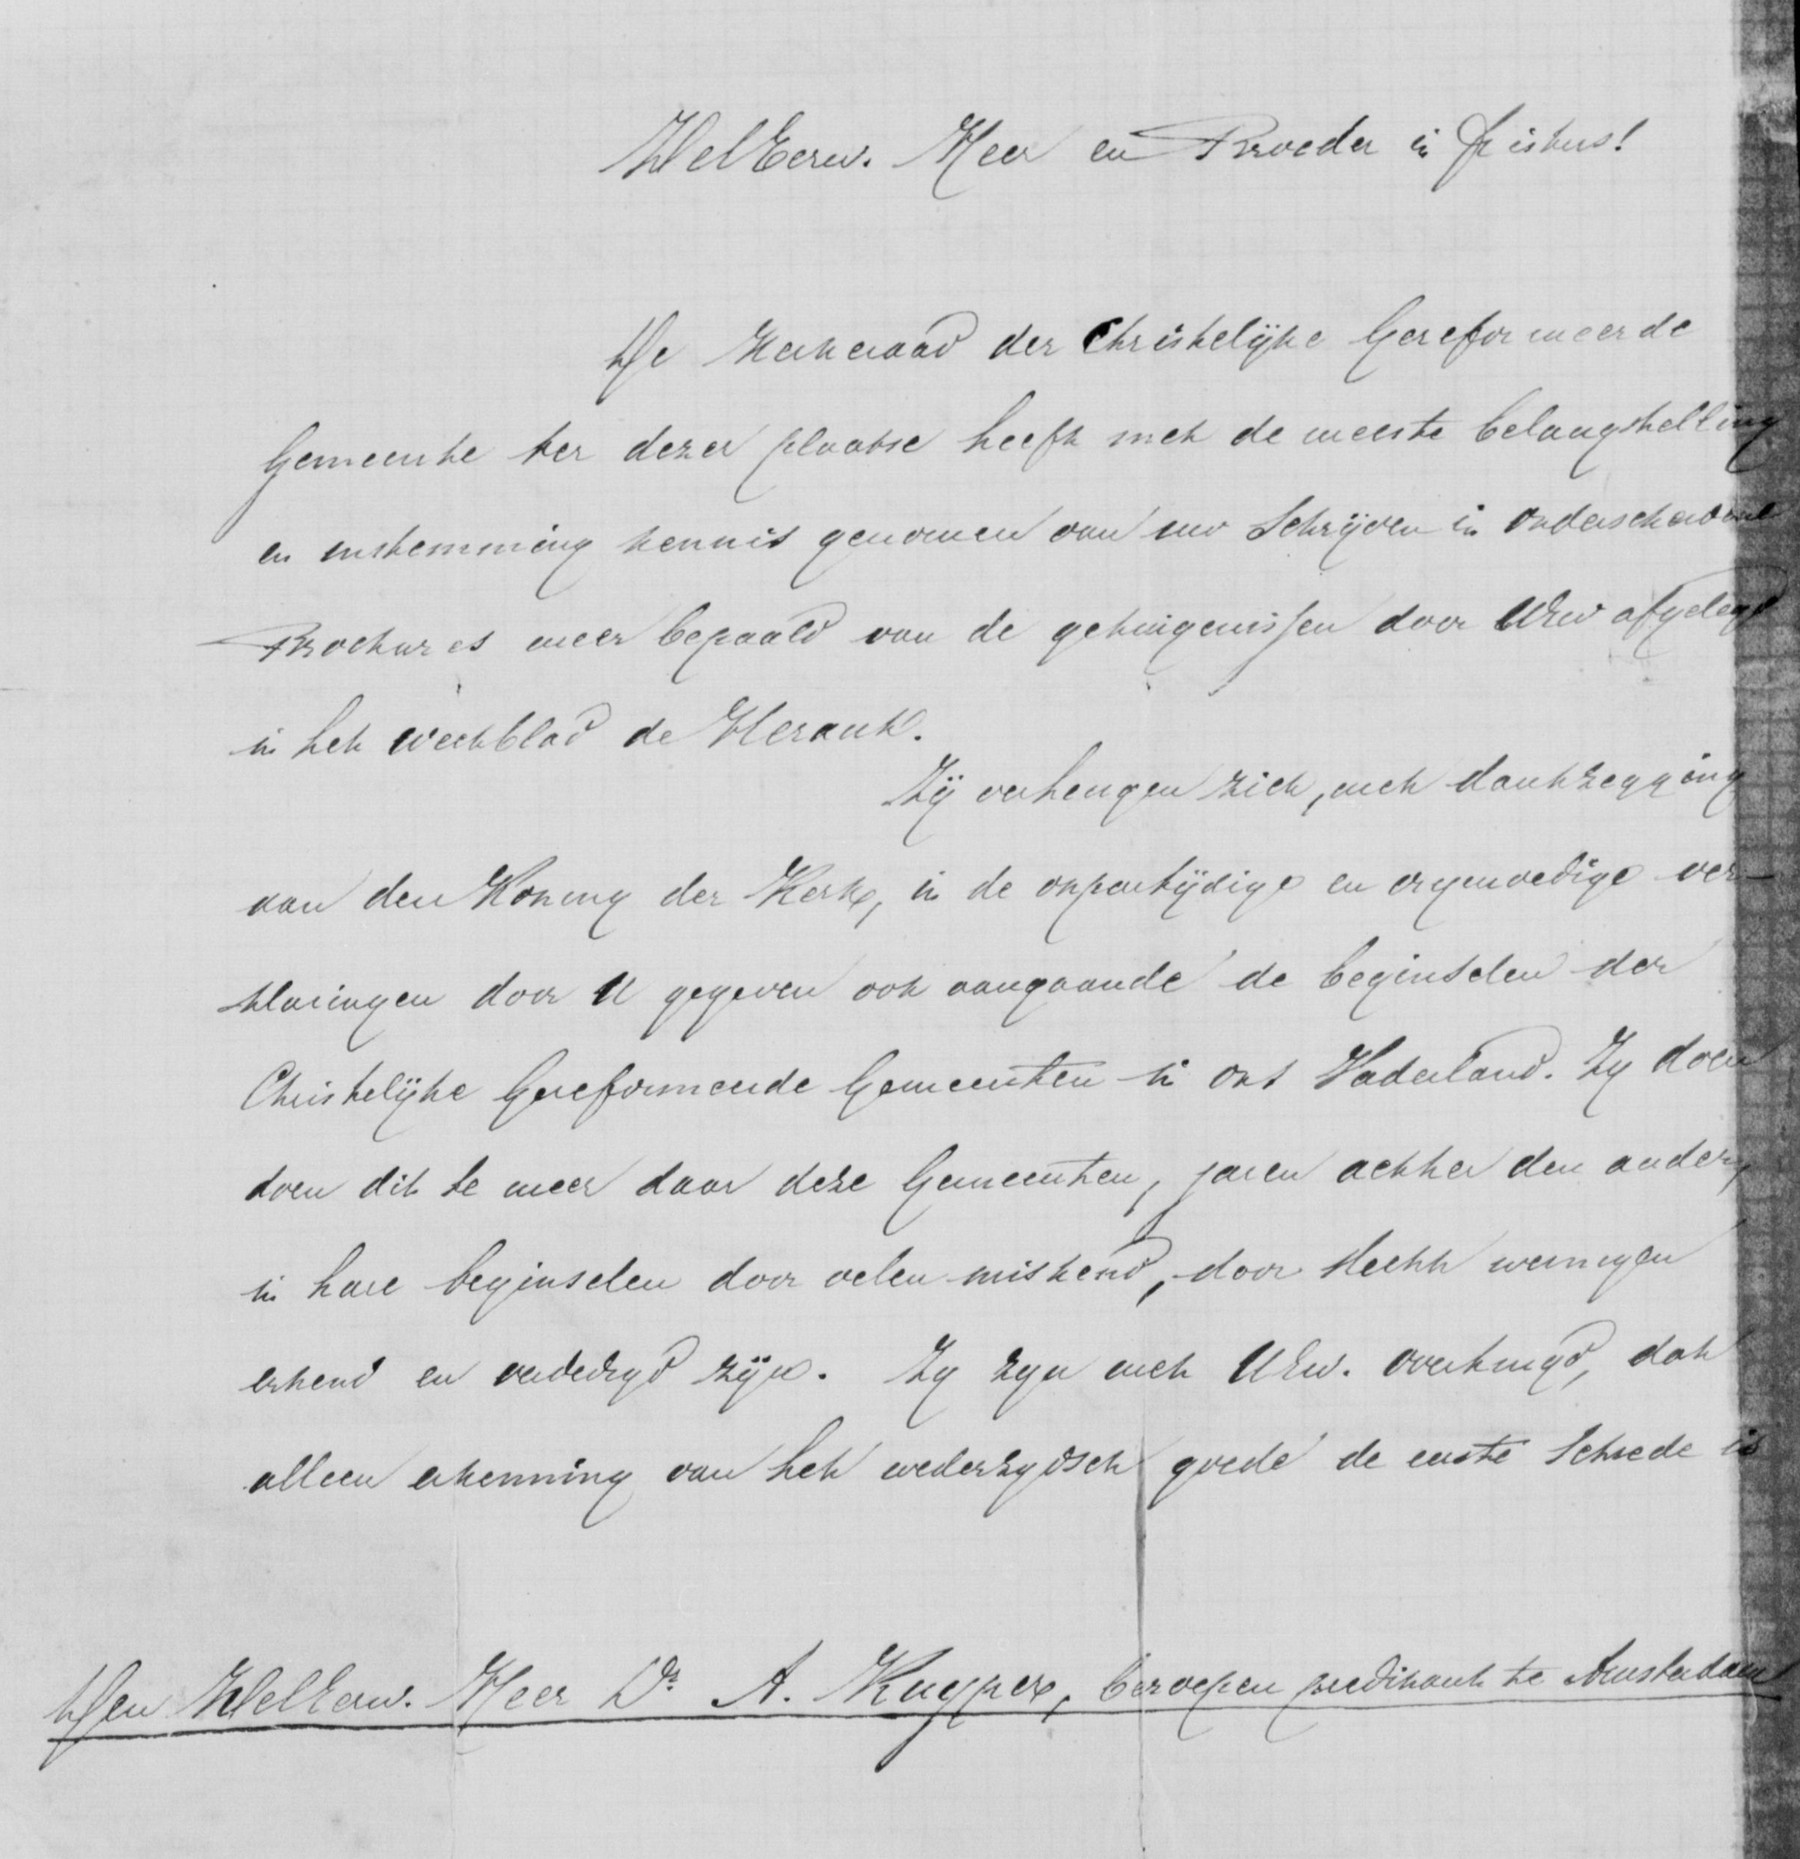 WelEerw. Heer en Broeder in Christus!
De Kerkeraad der Christelijke Gereformeerde
Gemeente ter dezer plaatse heeft met de meeste belangstelling
en instemming kennis genomen van uw Schrijven in onderscheidene
Brochures meer bepaald van de getuigenissen door UEw afgelegd
in het weekblad de Heraut.
Zij verheugen zich, met dankzegging
aan den Koning der Kerk, in de onpartijdige en eigenoedige ver-
klaringen door U gegeven ook aangaande de beginselen der
Christelijke Gereformeerde Gemeenten in ons Vaderland. Zij doen
doen dit te meer daar deze Gemeenten, jaren achter den ander,
in hare beginselen door velen miskend, door slecht weinigen
erkend en verdedigd zijn. Zij zijn met UEw. overtuigd, dat
alleen erkenning van het wederzijdsch goede de eerste Schrede is
Den WelEerw. Heer Dr A. Kuyper, beroepen predikant te Amsterdam